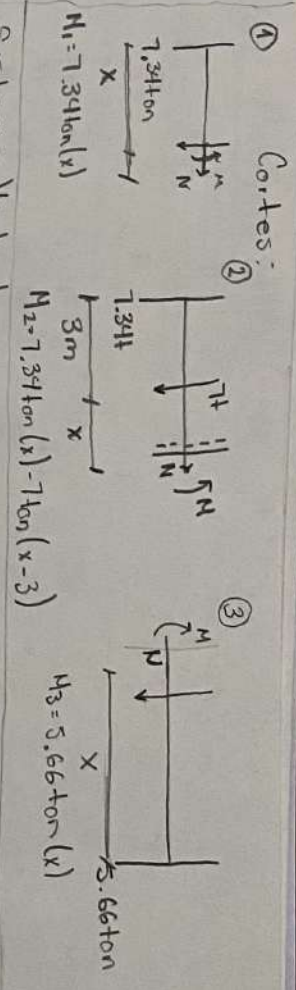 Cortes:
①
M
N
7,34ton
x
M₁=7.34ton(x)
②
7t
M
N
7.34t
3m x
M2=7,34ton(x)-7ton(x-3)
③
M
N
5.66ton
x
M3=5.66ton(x)